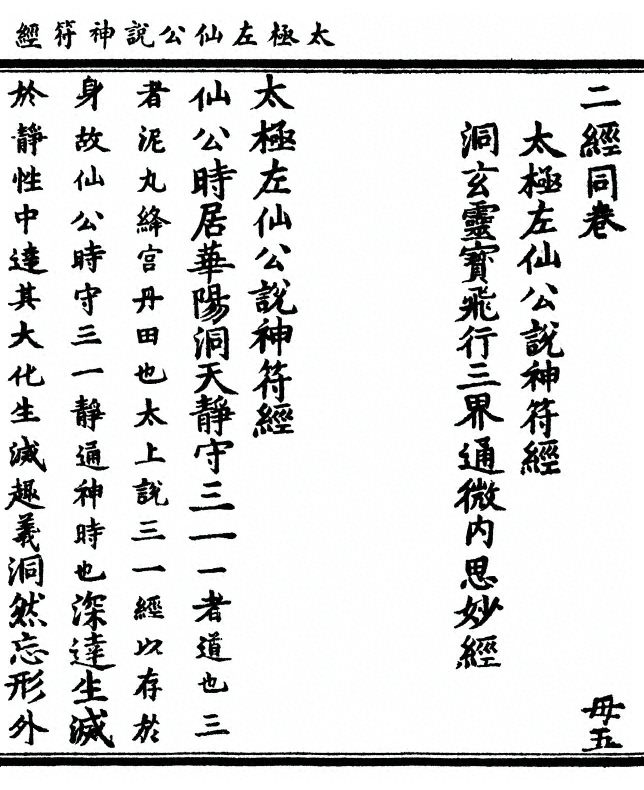 太極左仙公說神符經
二經同卷
毋五
太極左仙公說神符經
洞玄靈寶飛行三界通微內思妙經
太極左仙公說神符經
仙公時居華陽洞天靜守三一一者道也三
者泥丸絳宮丹田也太上說三一經以存於
身故仙公時守三一靜通神時也深達生滅
於靜性中達其大化生滅趣義洞然忘形外